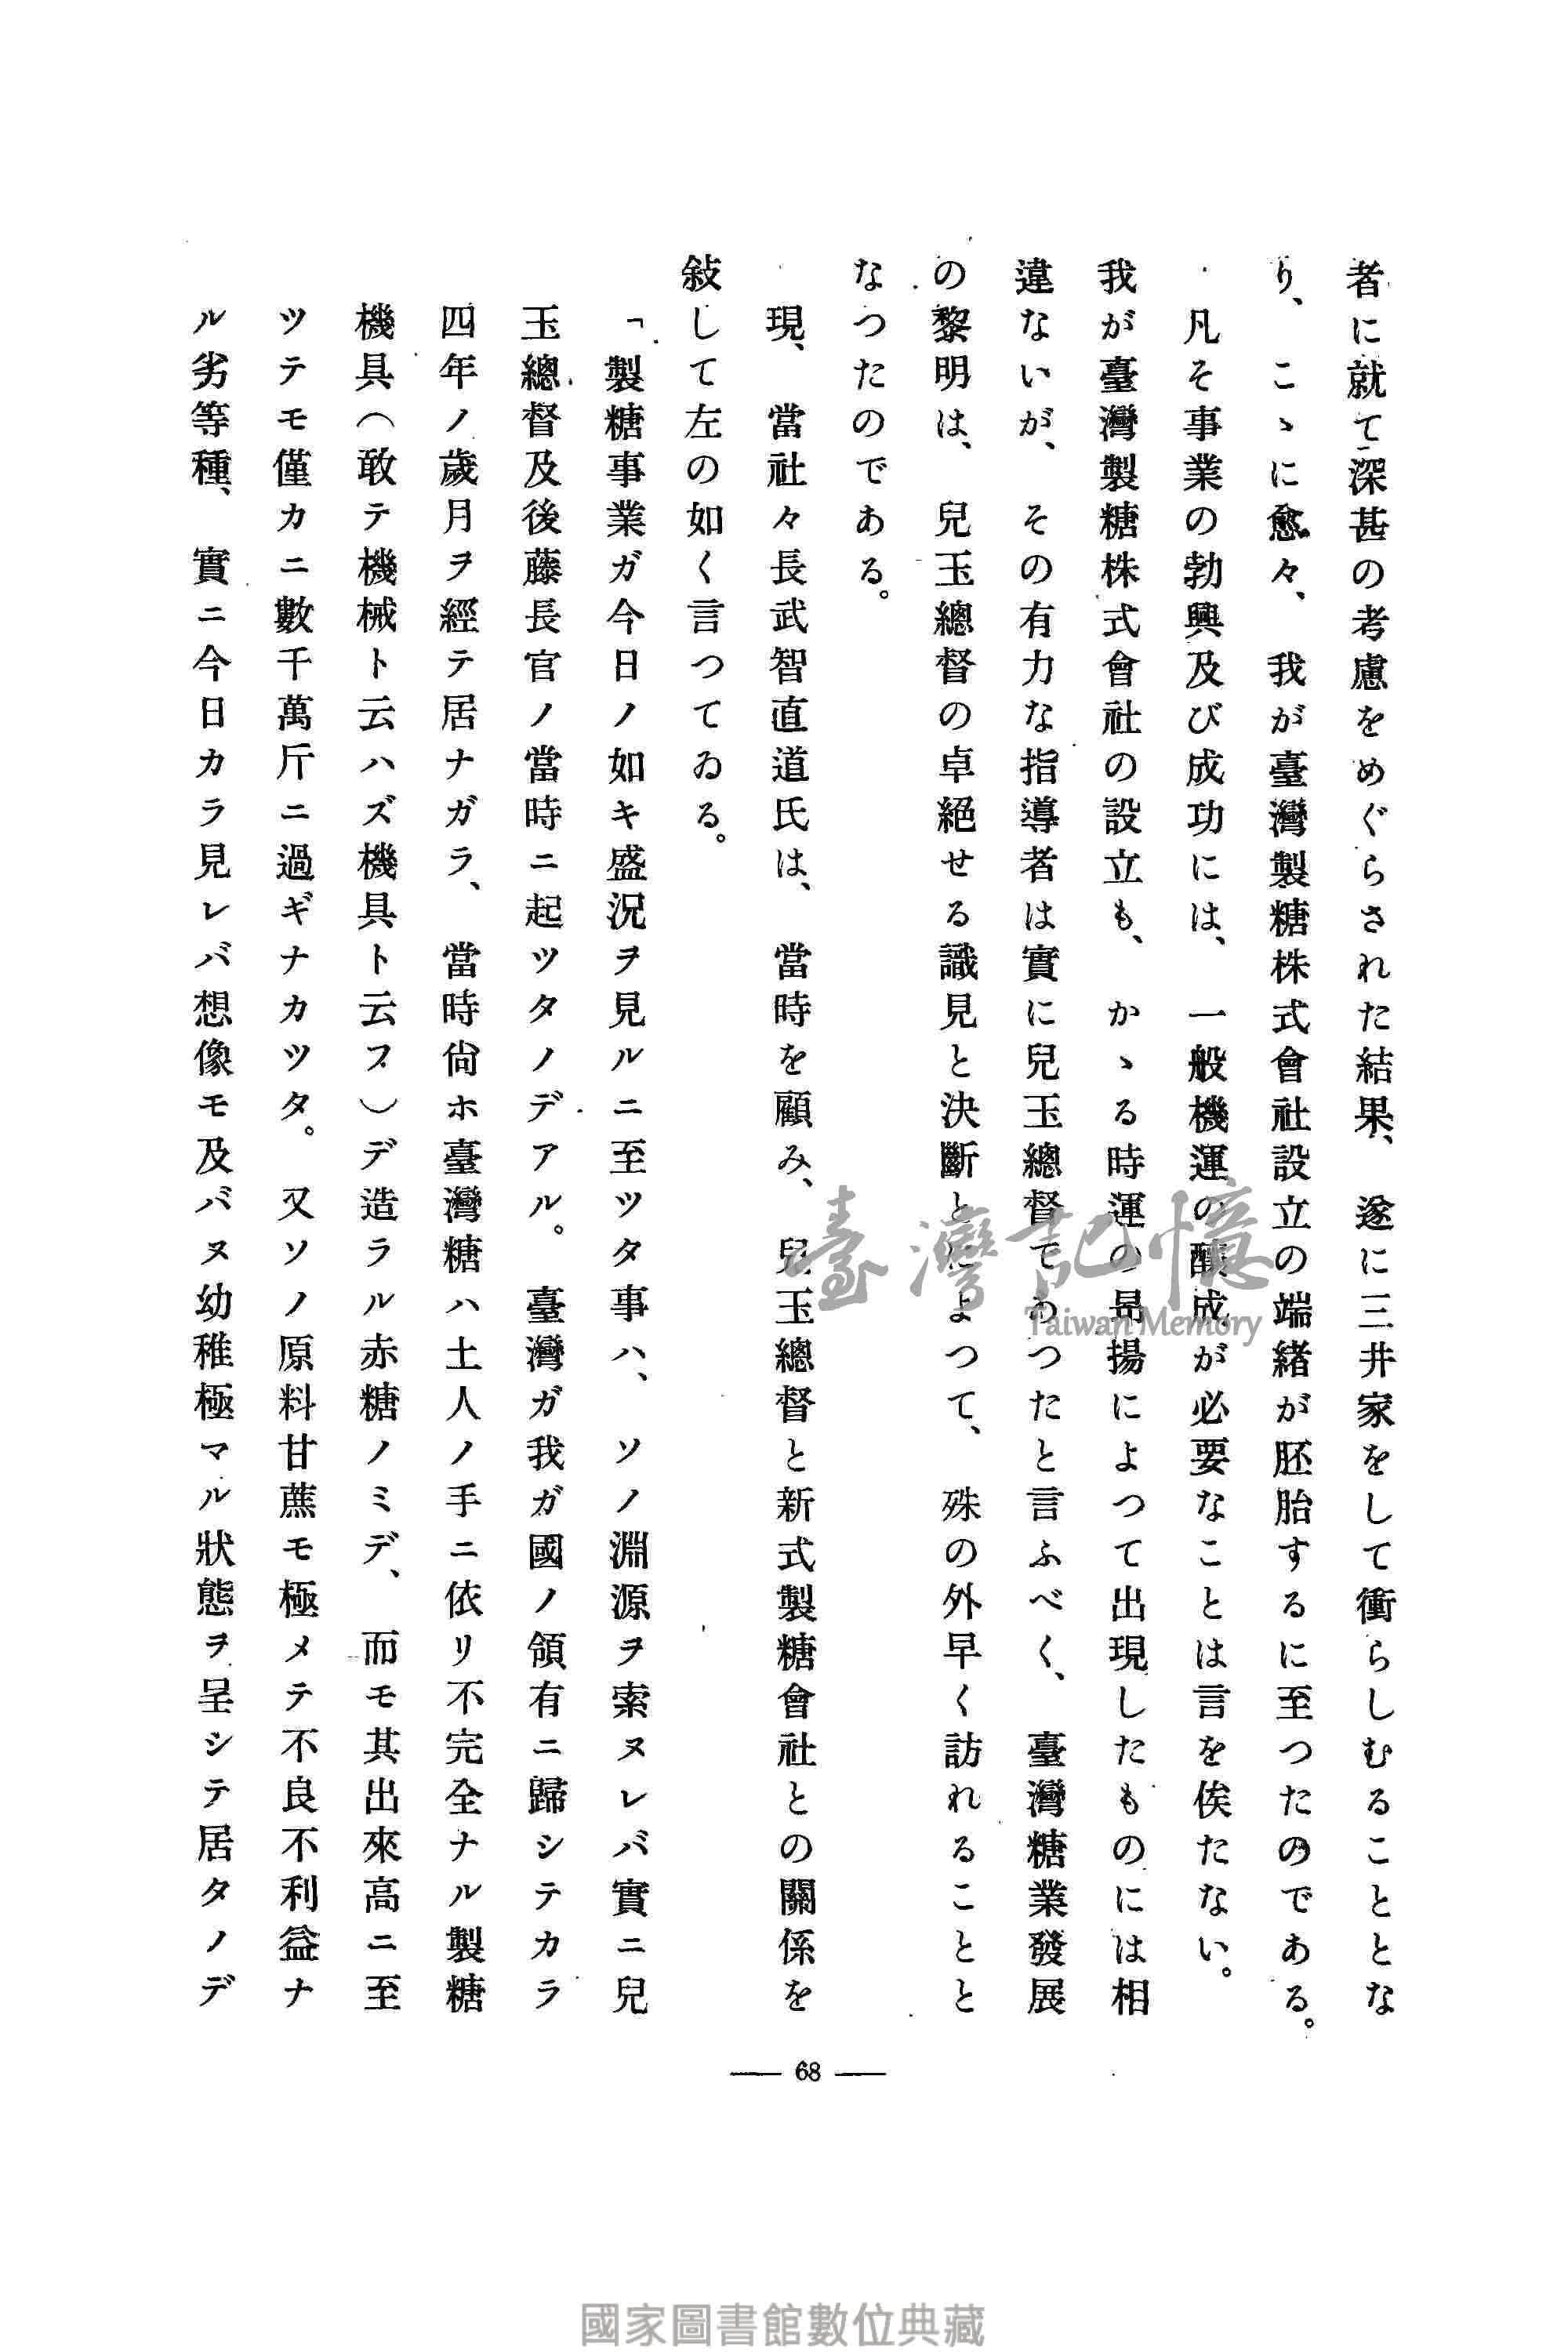 者に就て深甚の考慮をめぐらされた結果、遂に三井家をして衝らしむることとな
り、こゝに愈々、我が臺灣製糖株式會社設立の端緒が胚胎するに至つたのである。
凡そ事業の勃興及び成功には、一般機運の釀成が必要なことは言を俟たない。
我が臺灣製糖株式會社の設立も、かゝる時運の昂揚によつて出現したものには相
違ないが、その有力な指導者は實に兒玉總督であつたと言ふべく、臺灣糖業發展
の黎明は、兒玉總督の卓絕せる識見と決斷とによつて、殊の外早く訪れることと
なつたのである。
現、當社々長武智直道氏は、當時を顧み、兒玉總督と新式製糖會社との關係を
敍して左の如く言つてゐる。
「製糖事業ガ今日ノ如キ盛況ヲ見ルニ至ツタ事ハ、ソノ淵源ヲ索ヌレバ實ニ兒
玉總督及後藤長官ノ當時ニ起ツタノデアル。臺灣ガ我ガ國ノ領有ニ歸シテカラ
四年ノ歲月ヲ經テ居ナガラ、當時尙ホ臺灣糖ハ土人ノ手ニ依リ不完全ナル製糖
機具（敢テ機械ト云ハズ機具ト云フ）デ造ラル赤糖ノミデ、而モ其出來高ニ至
ツテモ僅カニ數千萬斤ニ過ギナカツタ。又ソノ原料甘蔗モ極メテ不良不利益ナ
ル劣等種、實ニ今日カラ見レバ想像モ及バヌ幼稚極マル狀態ヲ呈シテ居タノデ
— 68 —
臺灣記憶
Taiwan Memory
國家圖書館數位典藏